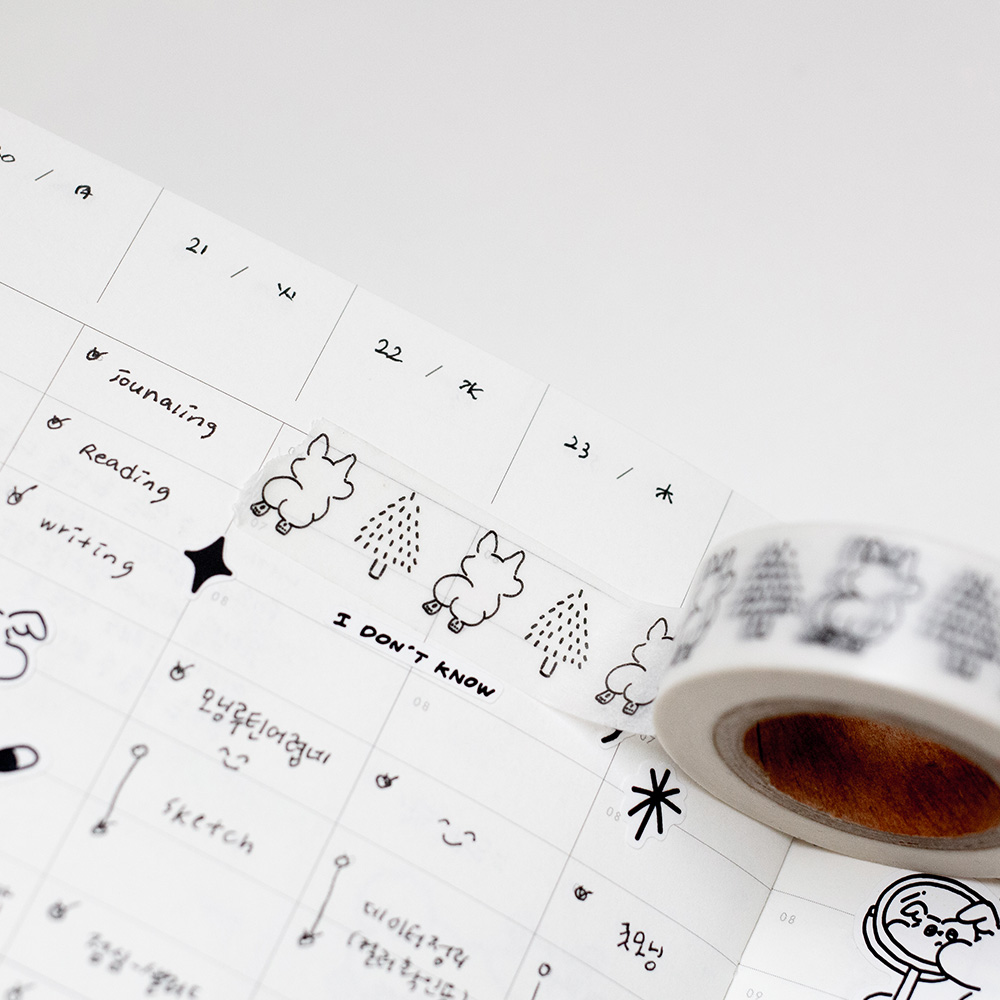 20 / 月
21 / 火
22 / 水
23 / 木
jounaling
Reading
writing
08
I DON'T KNOW
08
모닝루틴어렵네
sketch
08
데이터정리
굿모닝
08
09